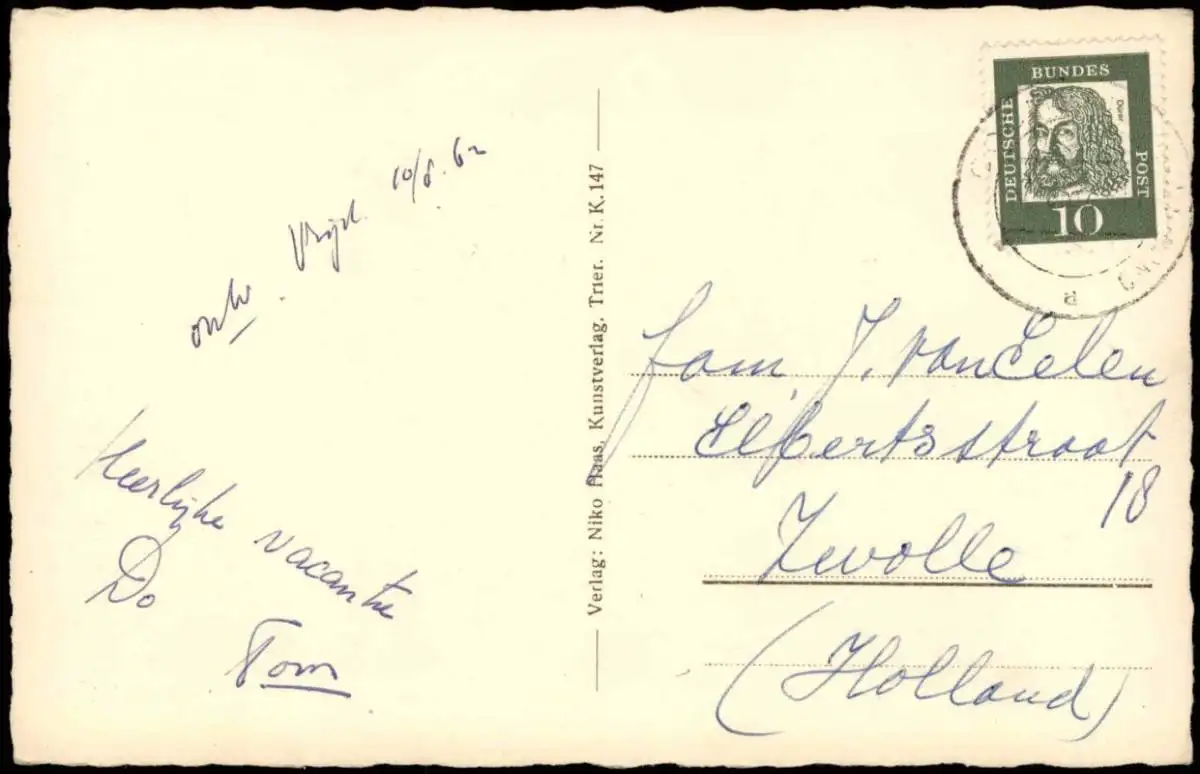 10/8.62
Heerlijke vacantie
Do
Tom
Verlag: Niko Haas, Kunstverlag, Trier. Nr. K.147
DEUTSCHE
BUNDES
POST
Dürer
10
Fam. J. van Eelen
Elbertsstraat
18
Zwolle
(Holland)